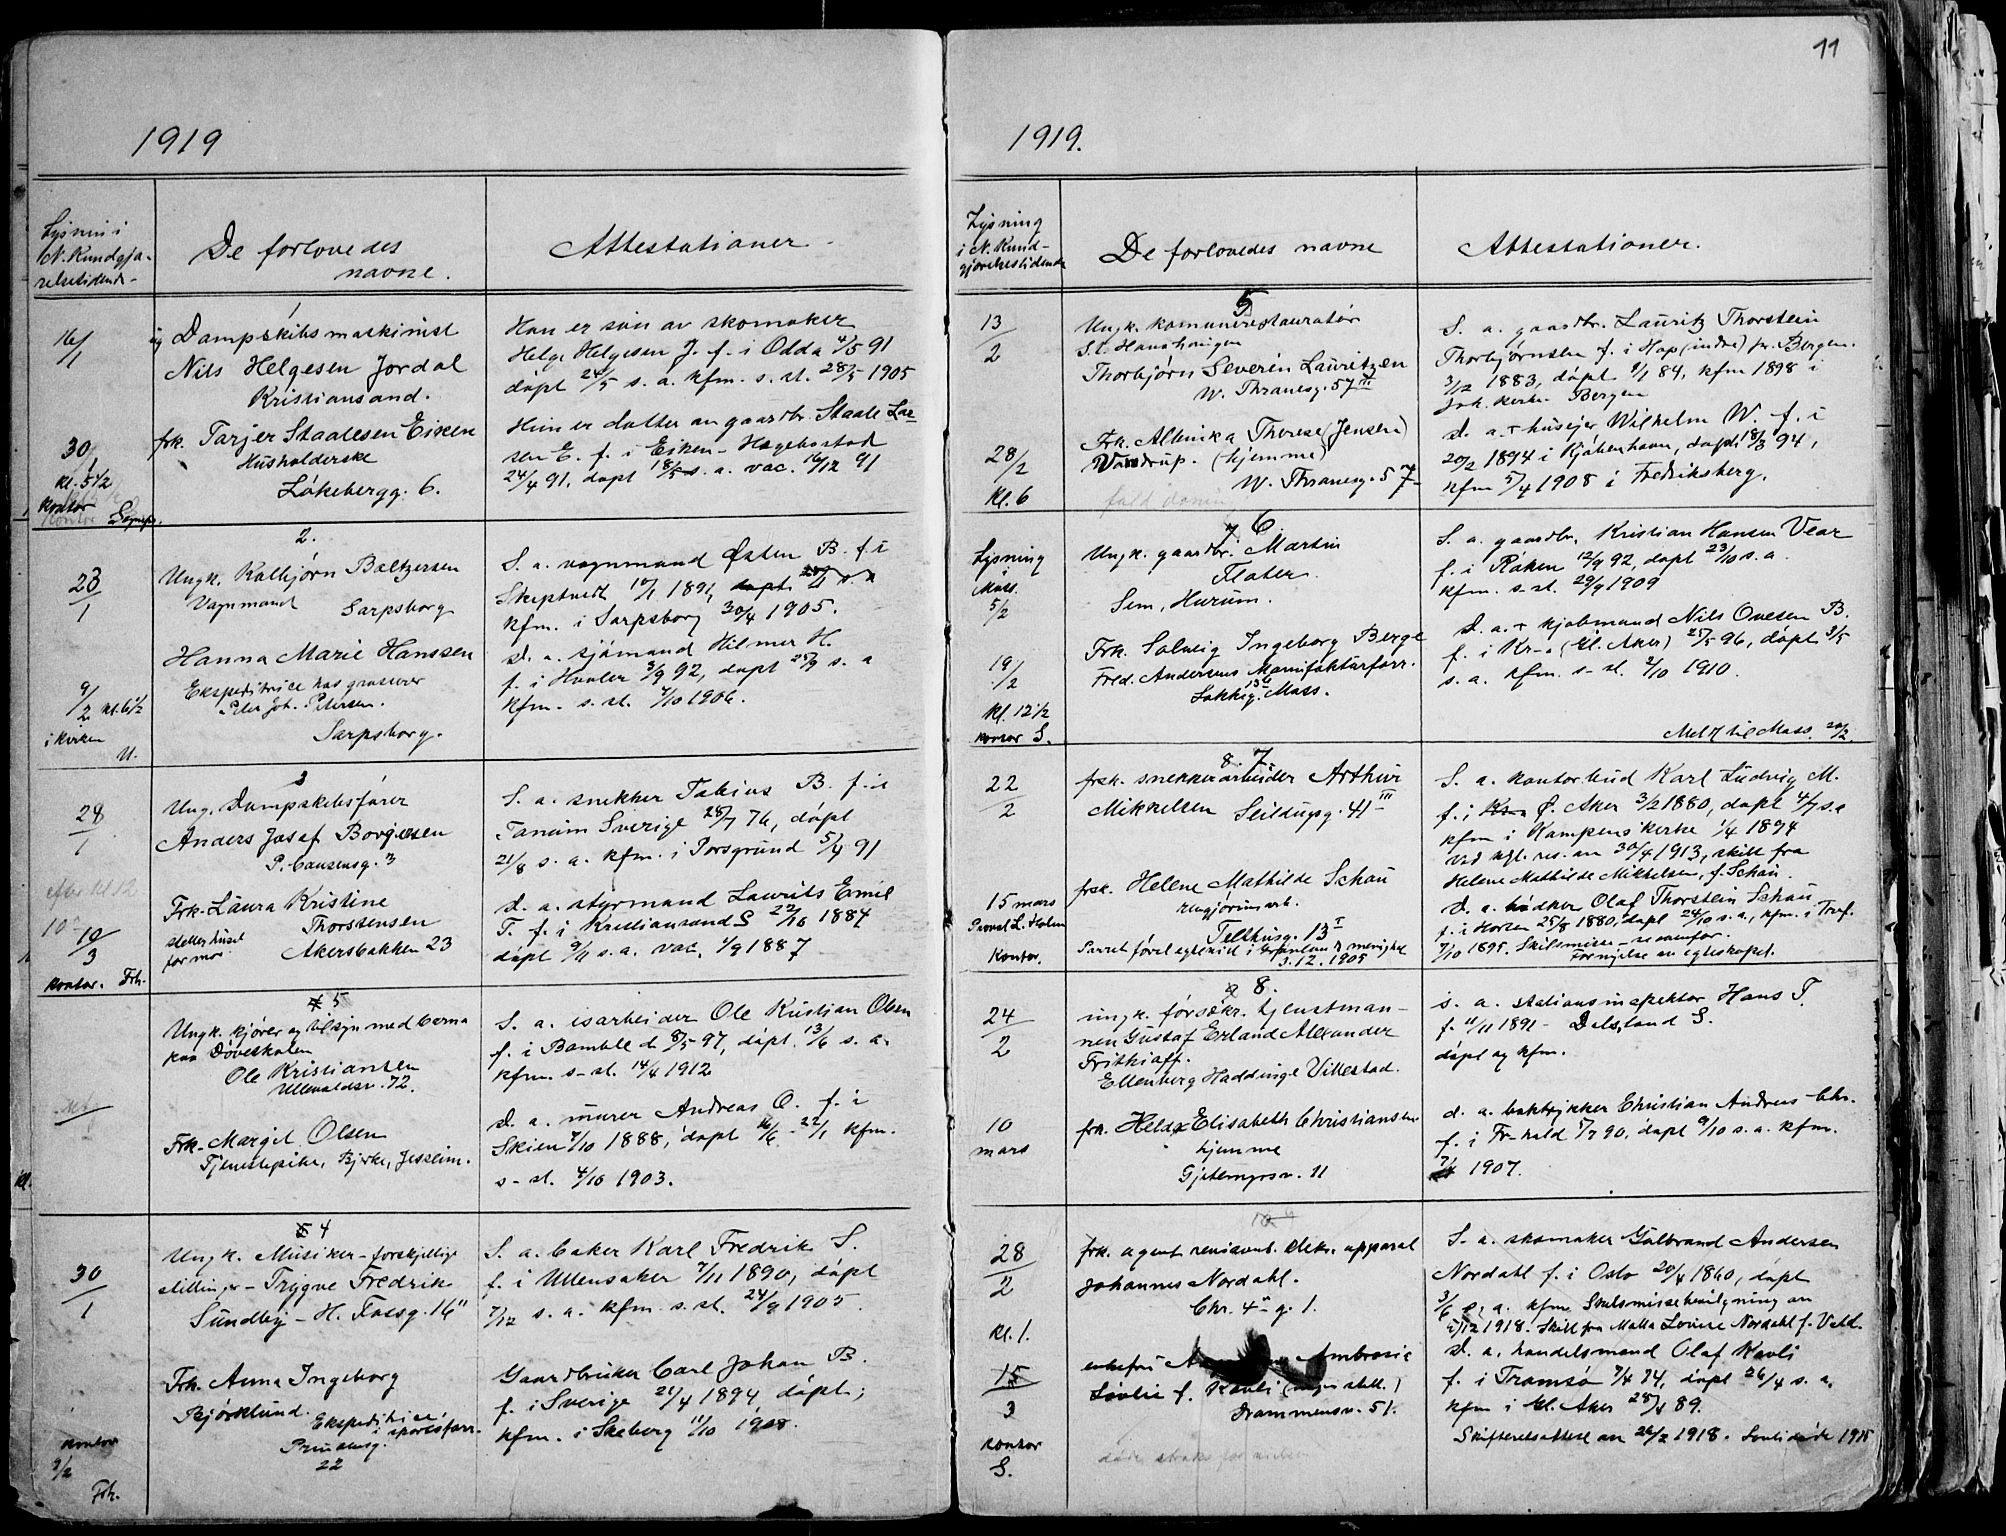 11
1919
Lysning i
N. Kundgjø-
relsestidende
De forlovedes
navne.
Attestationer
1
16/1
Dampskibsmaskinist
Nils Helgesen Jordal
Kristiansand.
Han er søn av skomaker
Helge Helgesen J. f. i Odda 4/5 91
døpt 24/5 s. a. kfm. s. st. 28/5 1905
30/1
kl. 5 1/2
kontor
frk. Tarjer Staalesen Eiken
Husholderske
Løkebergg. 6.
Hun er datter av gaardbr. Staale Lar-
sen E. f. i Eiken - Hægebostad
24/4 91, døpt 18/5 s. a. vac. 16/12 91
2.
23/1
Ungk. Kolbjørn Baltzersen
Vognmand Sarpsborg
S. a. vognmand Østen B. f. i
Skiptvedt 17/1 1891,
kfm. i Sarpsborg 30/4 1905.
9/2 kl. 6 1/2
i kirken
U.
Hanna Marie Hanssen
Ekspeditrice hos grosserer
Peter Joh. Petersen.
Sarpsborg.
D. a. sjømand Hilmer H.
f. i Hvaler 3/9 92, døpt 25/9 s. a
kfm. s. st. 7/10 1906.
3
28/1
Ung. Dampskibsfører
Anders Josef Borgesen
P. Clausensg. 3
S. a. snekker Tobias B. f. i
Tanum Sverige 28/7 76, døpt
21/8 s. a. kfm. i Porsgrund 5/4 91
efter kl 12
10/3
kontor. Frh.
Frk. Laura Kristine
Thorstensen
steller huset
for mor
Akersbakken 23
D. a. styrmand Laurits Emil
T. f. i Kristiansand S 22/10 1884
døpt 9/11 s. a. vac. 1/9 1887
5
Ungk. kjører og tilsyn med barna
paa Døveskolen
Ole Kristiansen
Ullevaldsv. 72.
S. a. isarbeider Ole Kristian Olsen
f. i Bamble d 8/5 97, døpt 13/6 s. a.
kfm. s. st. 14/4 1912
Frk. Margit Olsen
Tjenestepike, Bjerke, Jessheim.
D. a. murer Andreas O. f. i
Skien 7/10 1888, døpt
kfm.
s. st. 4/10 1903.
4
30/1
Ungk. Musiker - forskjellige
stillinger - Trygve Fredrik
Sundby - H. Fossg. 16"
S. a. baker Karl Fredrik S.
f. i Ullensaker 7/11 1890, døpt
7/12 s. a. kfm. s. st. 24/9 1905.
kontor
9/2
Frh.
Frk. Anna Ingeborg
Bjørklund.
Ekspeditrice
i sportsforr.
22
Gaardbruker Carl Johan B.
f. i Sverige 21/4 1894 døpt;
kfm. i Skeberg 11/10 1908.
1919.
Lysning
i N. Kund-
gjørelsestidende
De forlovedes navne
Attestationer.
5
13/2
Ungk. kommunerestauratør
Thorbjørn Severin Lauritzen
W. Thranesg. 57 III
S. a. gaardbr. Lauritz Thorstein
Thorbjørnsen f. i Hop (indre) pr. Bergen.
3/12 1883, døpt 9/1 84, kfm 1898 i
Joh. kirke. Bergen
28/2
kl. 6
Frk. Almika Therese (Jensen)
Vandrup. (hjemme)
W. Thranesg. 57
D. a. + husejer Wilhelm W. f. i
20/2 1894 i Kjøbenhavn, døpt 18/3 94,
kfm 5/4 1908 i Fredriksberg.
6
Lysning
Moss
5/2
Ungk. gaardbr. Martin
Floter.
Sem, Hurum.
S. a. gaardbr. Kristian Hansen Vear
f. i Røken 12/9 92, døpt 23/10 s. a.
kfm. s. st. 29/9 1909
19/2
kl. 12 1/2
kontor S.
Frk. Solveig Ingeborg Berge
Fred. Andersens Manufakturforr.
Moss.
D. a. + kjøbmand Nils Ovesen B.
f. i Kr-a (Gl. Aker) 25/5 96, døpt 3/5
s. a. kfm. s. st. 2/10 1910.
Meldt til Moss. 20/2.
7.
22/2
frsk. snekkerarbeider Arthur
Mikkelsen Seildugsg. 41 III
S. a. kontorbud Karl Ludvig M.
f. i Ø. Aker 3/2 1880, døpt 4/7 s. a
kfm i Kampens kirke 1/4 1894
ved kgl. res. av 30/4 1913, skilt fra
Helene Mathilde Mikkelsen, f. Schau.
15 mars
Provst L. Holm
Kontor.
frsk. Helene Mathilde Schau
rengjøringsarb.
Telthusg. 13 I
3. 12. 1905
D. a. bødker Olaf Thorstein Schau
f. i Horten 25/8 1880, døpt 24/10 s. a., kfm. i Tref.
7/10 1895. Skilsmisse - se ovenfor.
Fornyelse av egteskapet.
8.
24/2
ungk. försäkr. tjenstman-
nen Gustaf Erland Alexander
Frithioff.
Ellenberg Haddinge Villestad.
s. a. stationsinspektor Hans F.
f. 11/11 1891 - Dalsland S.
døpt og kfm.
10
mars
frk. Helda Elisabeth Christiansen
hjemme
Gjetemyrsv. 11
d. a. boktrykker Christian Andreas Chr.
f. i Fr-hald 5/7 90, døpt 9/10 s. a. kfm.
1907.
28/2
kl. 1.
frk. agent elektr. apparat
Johannes Nordahl.
Chr. 4des g. 1.
S. a. skomaker Gulbrand Andersen
Nordahl f. i Oslo 20/4 1860, døpt
3/6 s. a. kfm. Skilsmissebevilgning av
5/12 1918. Skilt fra Malla Lovise Nordahl f. Vold.
15/3
kontor
S.
enkefru Ambrosia
Sovlie f. Kavli
Drammensv. 51.
D. a. handelsmand Olaf Kavli
f. i Tromsø 7/4 74, døpt 26/4 s. a.
kfm i Gl. Aker 28/4 89.
Skifteretsattest av 26/2 1918. Sovli døde 1915